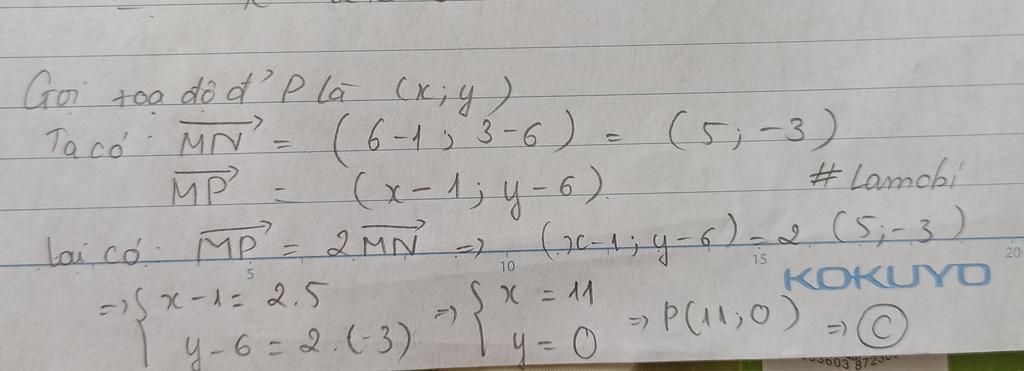 Gọi toạ độ đ' P là (x; y)
Ta có: MN = (6-1; 3-6) = (5; -3)
MP = (x-1; y-6)
#Lamchi
Lại có: MP = 2MN => (x-1; y-6) = 2 (5; -3)
5 10 15 20
KOKUYO
=> { x-1 = 2.5 => { x = 11
y-6 = 2.(-3) y = 0 => P(11; 0) => C